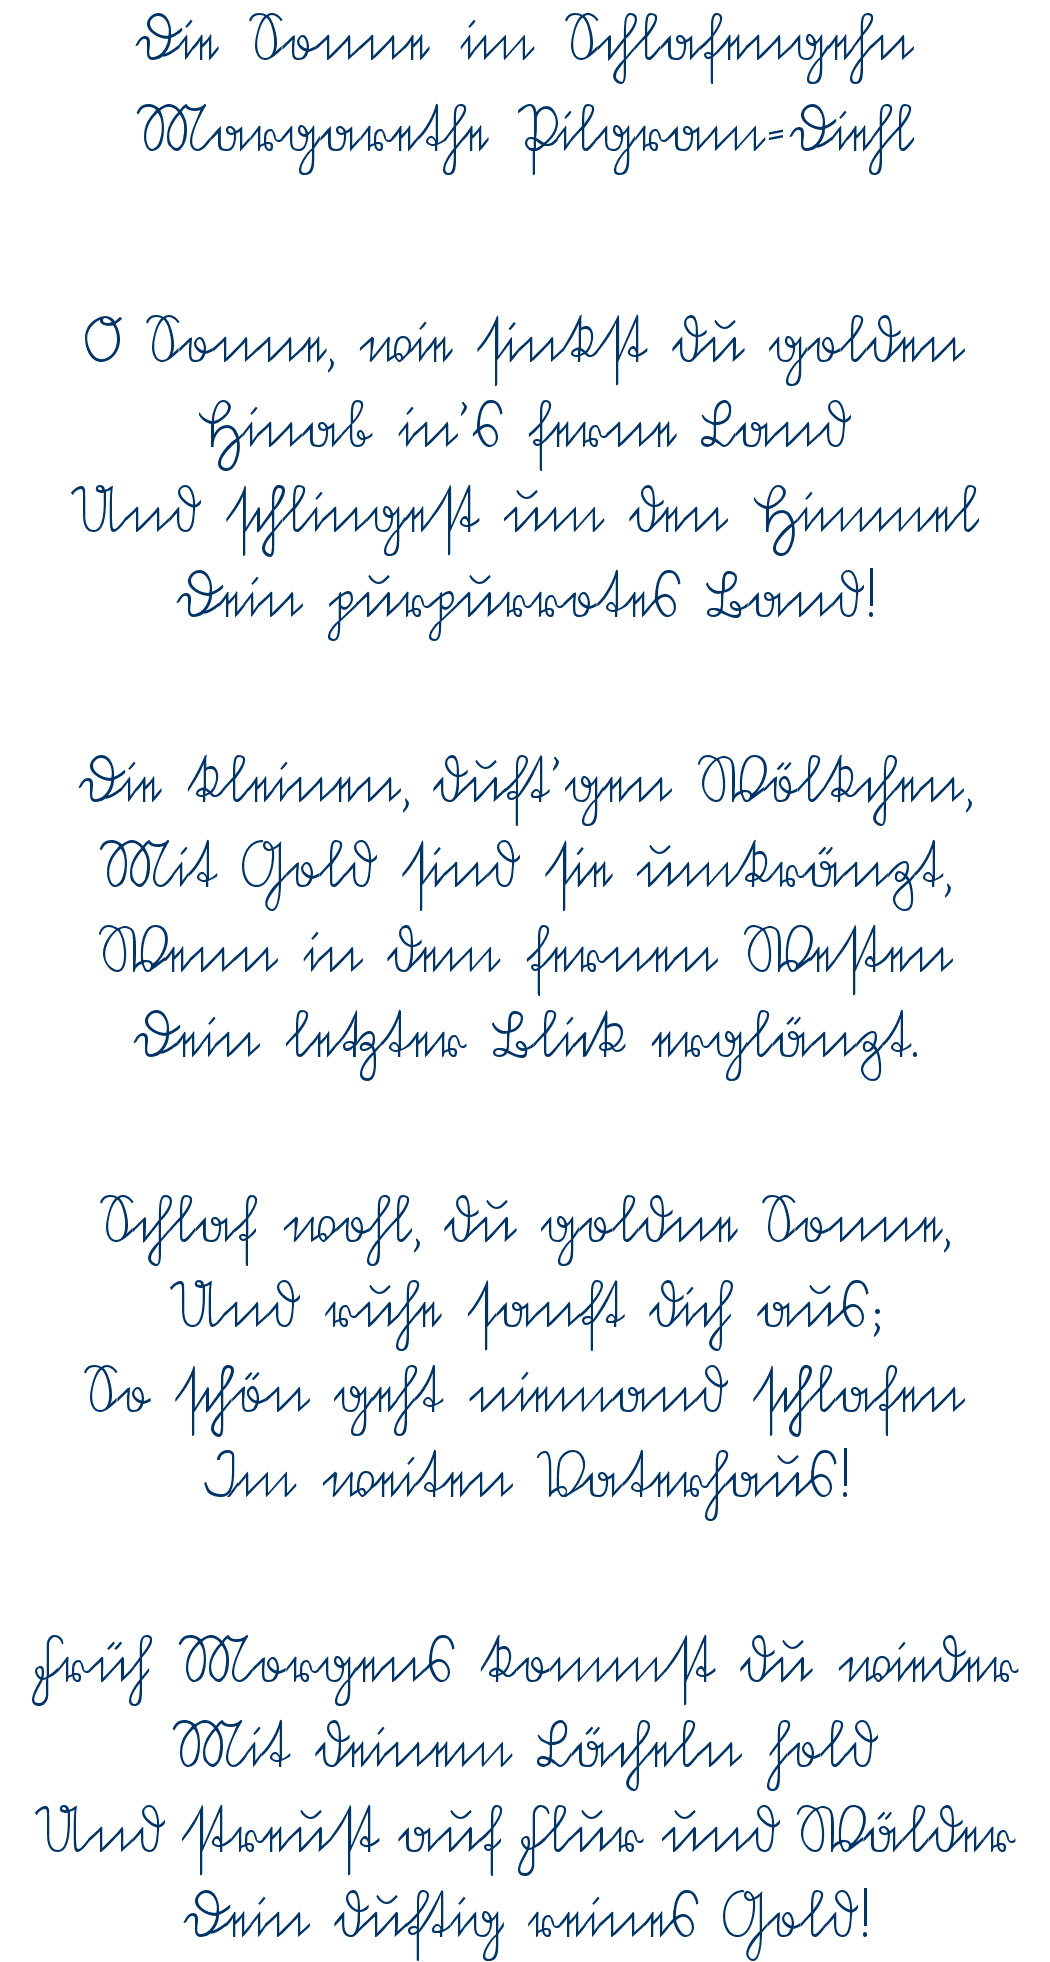 Die Sonne im Schlafengehn
Margarethe Pilgram=Diehl
O Sonne, wie sinkst du golden
Hinab in's ferne Land
Und schlingest um den Himmel
Dein purpurrotes Band!
Die kleinen, duft'gen Wölkchen,
Mit Gold sind sie umkränzt,
Wenn in dem fernen Westen
Dein letzter Blick erglänzt.
Schlaf wohl, du goldne Sonne,
Und ruhe sanft dich aus;
So schön geht niemand schlafen
Im weiten Vaterhaus!
Früh Morgens kommst du wieder
Mit deinem Lächeln hold
Und streust auf Flur und Wälder
Dein duftig reines Gold!